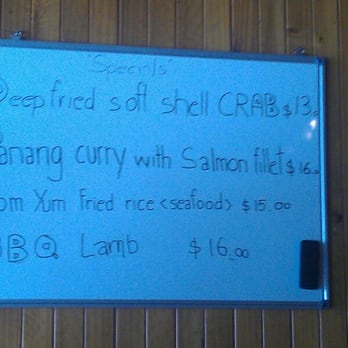 'Specials'
Deep fried soft shell CRAB $13.
Panang curry with Salmon fillet $16.
om Yum Fried rice <seafood> $15.00
BBQ Lamb $16.00